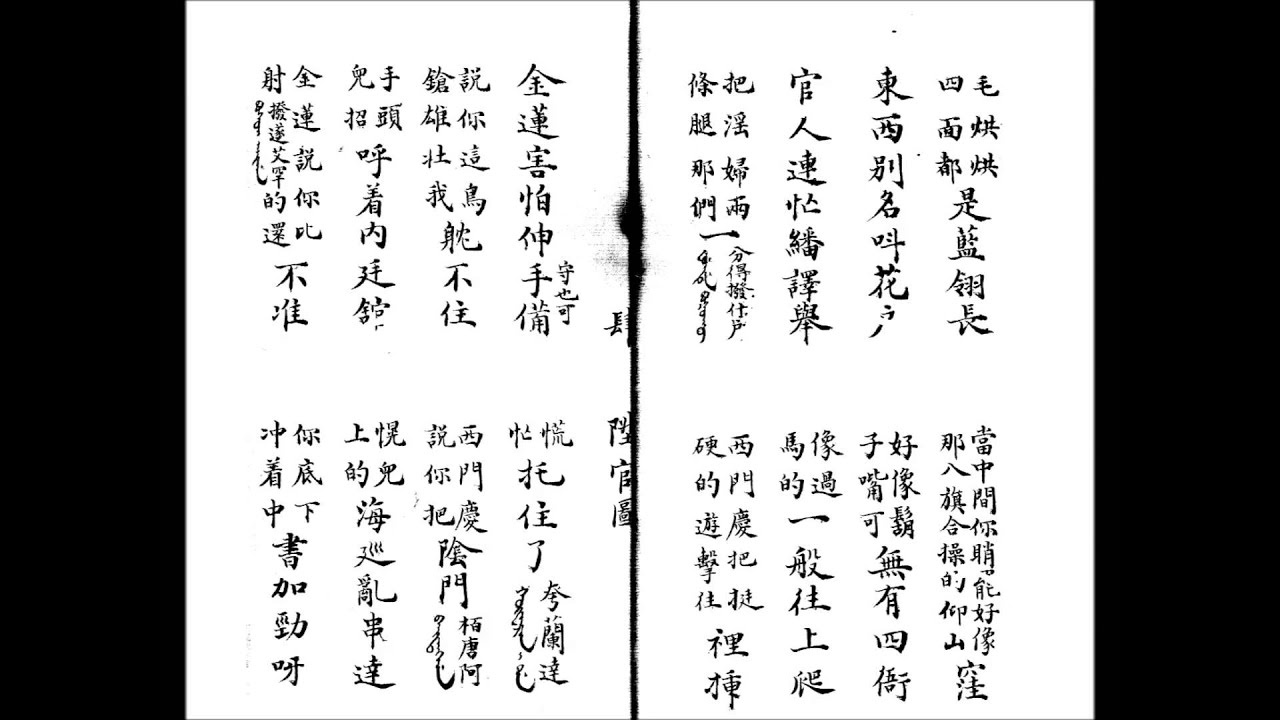 毛烘烘四面都是藍翎長
當中間你瞧能好像那八旗合操的仰山窪
東西別名呌花户
好像鬍子嘴可無有四衙
官人連忙繙譯舉
像過馬的一般往上爬
把淫婦兩條腿那們一分得撥什戶
西門慶把挺硬的遊擊往裡揷
肆 陞官圖
金蓮害怕伸手備守也可
慌忙托住了夸蘭達
說你這鳥鎗雄壯我躭不住
西門慶說你把陰門栢唐阿
手頭兒招呼着内廷舘
愰兒上的海廵亂串達
金蓮說你比射撥遂艾罕的還不准
你底下冲着中書加勁呀